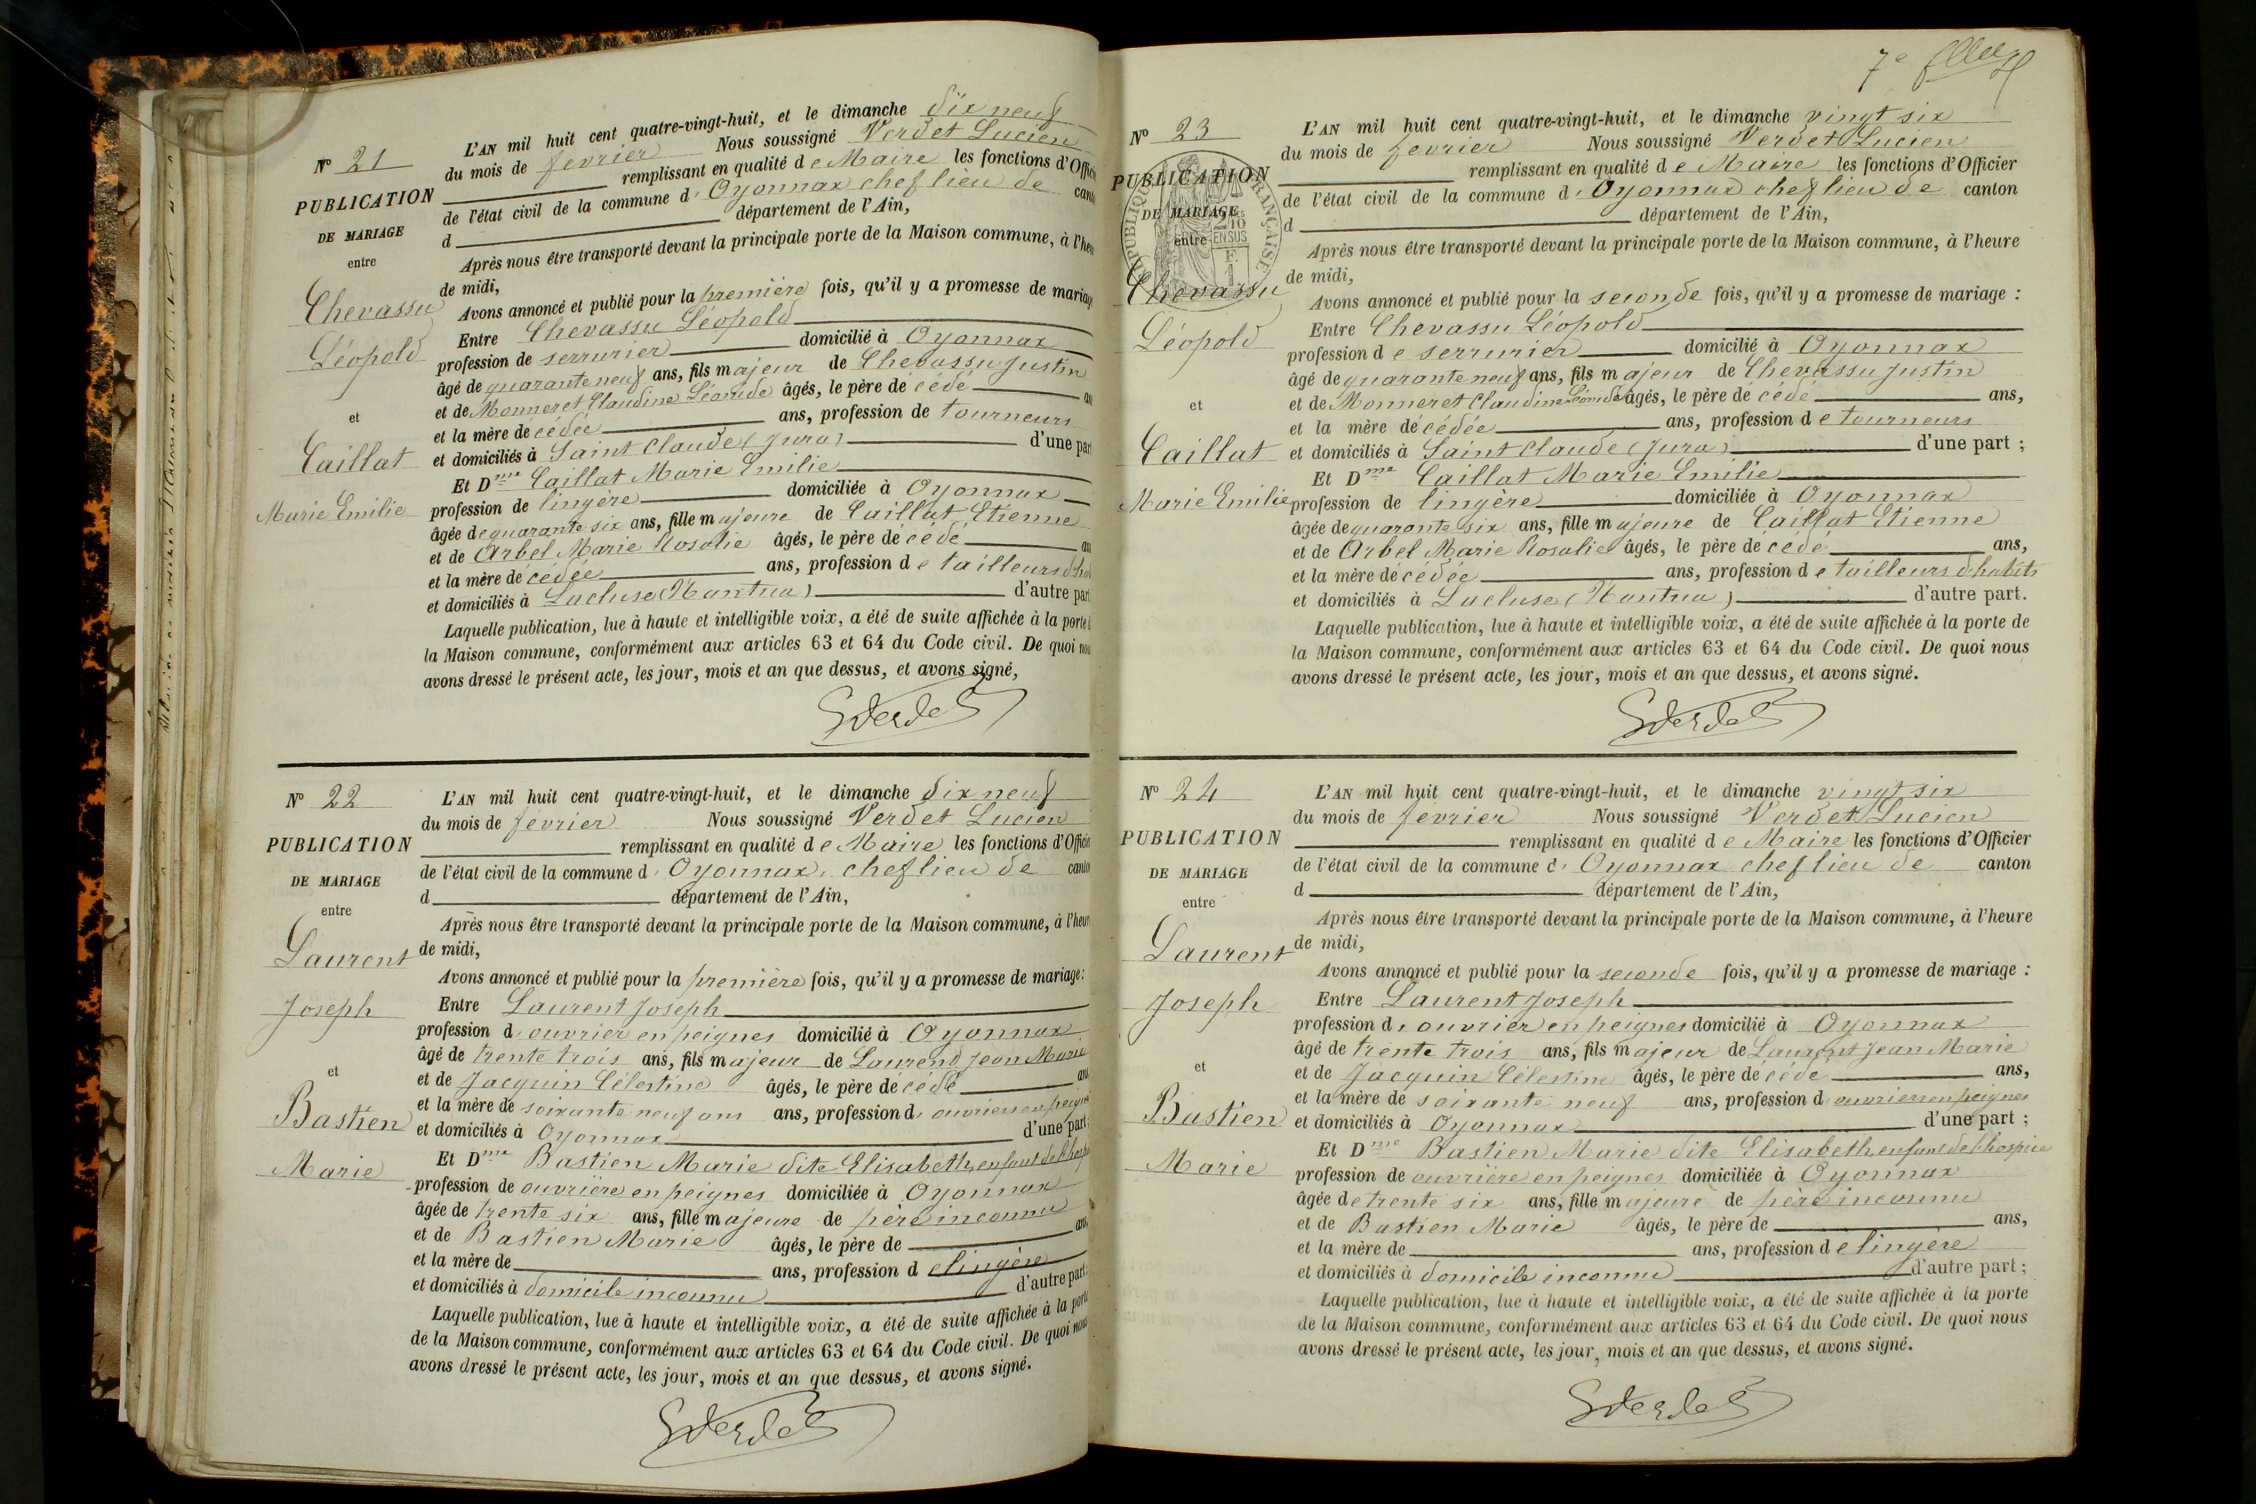 N° 21
PUBLICATION
DE MARIAGE
entre
Chevassu
Léopold
et
Caillat
Marie Emilie
L'AN mil huit cent quatre-vingt-huit, et le dimanche dix neuf
du mois de fevrier Nous soussigné Verdet Lucien
remplissant en qualité de Maire les fonctions d'Offici
de l'état civil de la commune d' Oyonnax chef lieu de cant
d département de l'Ain,
Après nous être transporté devant la principale porte de la Maison commune, à l'heu
de midi,
Avons annoncé et publié pour la première fois, qu'il y a promesse de mariage
Entre Chevassu Léopold
profession de serrurier domicilié à Oyonnax
âgé de quarante neuf ans, fils majeur de Chevassu Justin
et de Monneret Claudine Léonide âgés, le père décédé an
et la mère décédée ans, profession de tourneurs
et domiciliés à Saint Claude (Jura) d'une part
Et Dme Caillat Marie Emilie
profession de lingère domiciliée à Oyonnax
âgée de quarante six ans, fille majeure de Caillat Etienne
et de Arbel Marie Rosalie âgés, le père décédé an
et la mère décédée ans, profession de tailleurs d'ha
et domiciliés à Lacluse (Nantua) d'autre part
Laquelle publication, lue à haute et intelligible voix, a été de suite affichée à la porte d
la Maison commune, conformément aux articles 63 et 64 du Code civil. De quoi nou
avons dressé le présent acte, les jour, mois et an que dessus, et avons signé,
Verdet
N° 22
PUBLICATION
DE MARIAGE
entre
Laurent
Joseph
et
Bastien
Marie
L'AN mil huit cent quatre-vingt-huit, et le dimanche dix neuf
du mois de fevrier Nous soussigné Verdet Lucien
remplissant en qualité de Maire les fonctions d'Offici
de l'état civil de la commune d' Oyonnax, chef lieu de canton
d département de l'Ain,
Après nous être transporté devant la principale porte de la Maison commune, à l'heur
de midi,
Avons annoncé et publié pour la première fois, qu'il y a promesse de mariage :
Entre Laurent Joseph
profession d' ouvrier en peignes domicilié à Oyonnax
âgé de trente trois ans, fils majeur de Laurent Jean Marie
et de Jacquin Célestine âgés, le père décédé ans
et la mère de soixante neuf ans ans, profession d' ouvriers en peigne
et domiciliés à Oyonnax d'une part;
Et Dme Bastien Marie dite Elisabeth, enfant de l'hospi
profession de ouvrière en peignes domiciliée à Oyonnax
âgée de trente six ans, fille majeure de père inconnu
et de Bastien Marie âgés, le père de ans
et la mère de ans, profession de lingère
et domiciliés à domicile inconnu d'autre part
Laquelle publication, lue à haute et intelligible voix, a été de suite affichée à la porte
de la Maison commune, conformément aux articles 63 et 64 du Code civil. De quoi nous
avons dressé le présent acte, les jour, mois et an que dessus, et avons signé.
Verdet
7e
N° 23
PUBLICATION
DE MARIAGE
entre
Chevassu
Léopold
et
Caillat
Marie Emilie
RÉPUBLIQUE FRANÇAISE
2/10
EN SUS
L'AN mil huit cent quatre-vingt-huit, et le dimanche vingt six
du mois de fevrier Nous soussigné Verdet Lucien
remplissant en qualité de Maire les fonctions d'Officier
de l'état civil de la commune d' Oyonnax chef lieu de canton
d département de l'Ain,
Après nous être transporté devant la principale porte de la Maison commune, à l'heure
de midi,
Avons annoncé et publié pour la seconde fois, qu'il y a promesse de mariage :
Entre Chevassu Léopold
profession de serrurier domicilié à Oyonnax
âgé de quarante neuf ans, fils majeur de Chevassu Justin
et de Monneret Claudine Léonide âgés, le père décédé ans,
et la mère décédée ans, profession de tourneurs
et domiciliés à Saint Claude (Jura) d'une part ;
Et Dme Caillat Marie Emilie
profession de lingère domiciliée à Oyonnax
âgée de quarante six ans, fille majeure de Caillat Etienne
et de Arbel Marie Rosalie âgés, le père décédé ans,
et la mère décédée ans, profession de tailleurs d'habits
et domiciliés à Lacluse (Nantua) d'autre part.
Laquelle publication, lue à haute et intelligible voix, a été de suite affichée à la porte de
la Maison commune, conformément aux articles 63 et 64 du Code civil. De quoi nous
avons dressé le présent acte, les jour, mois et an que dessus, et avons signé.
Verdet
N° 24
PUBLICATION
DE MARIAGE
entre
Laurent
Joseph
et
Bastien
Marie
L'AN mil huit cent quatre-vingt-huit, et le dimanche vingt six
du mois de fevrier Nous soussigné Verdet Lucien
remplissant en qualité de Maire les fonctions d'Officier
de l'état civil de la commune d' Oyonnax chef lieu de canton
d département de l'Ain,
Après nous être transporté devant la principale porte de la Maison commune, à l'heure
de midi,
Avons annoncé et publié pour la seconde fois, qu'il y a promesse de mariage :
Entre Laurent Joseph
profession d' ouvrier en peignes domicilié à Oyonnax
âgé de trente trois ans, fils majeur de Laurent Jean Marie
et de Jacquin Célestine âgés, le père décédé ans,
et la mère de soixante neuf ans, profession d' ouvriers en peignes
et domiciliés à Oyonnax d'une part ;
Et Dme Bastien Marie dite Elisabeth enfant de l'hospice
profession de ouvrière en peignes domiciliée à Oyonnax
âgée de trente six ans, fille majeure de père inconnu
et de Bastien Marie âgés, le père de ans,
et la mère de ans, profession de lingère
et domiciliés à domicile inconnu d'autre part ;
Laquelle publication, lue à haute et intelligible voix, a été de suite affichée à la porte
de la Maison commune, conformément aux articles 63 et 64 du Code civil. De quoi nous
avons dressé le présent acte, les jour, mois et an que dessus, et avons signé.
Verdet